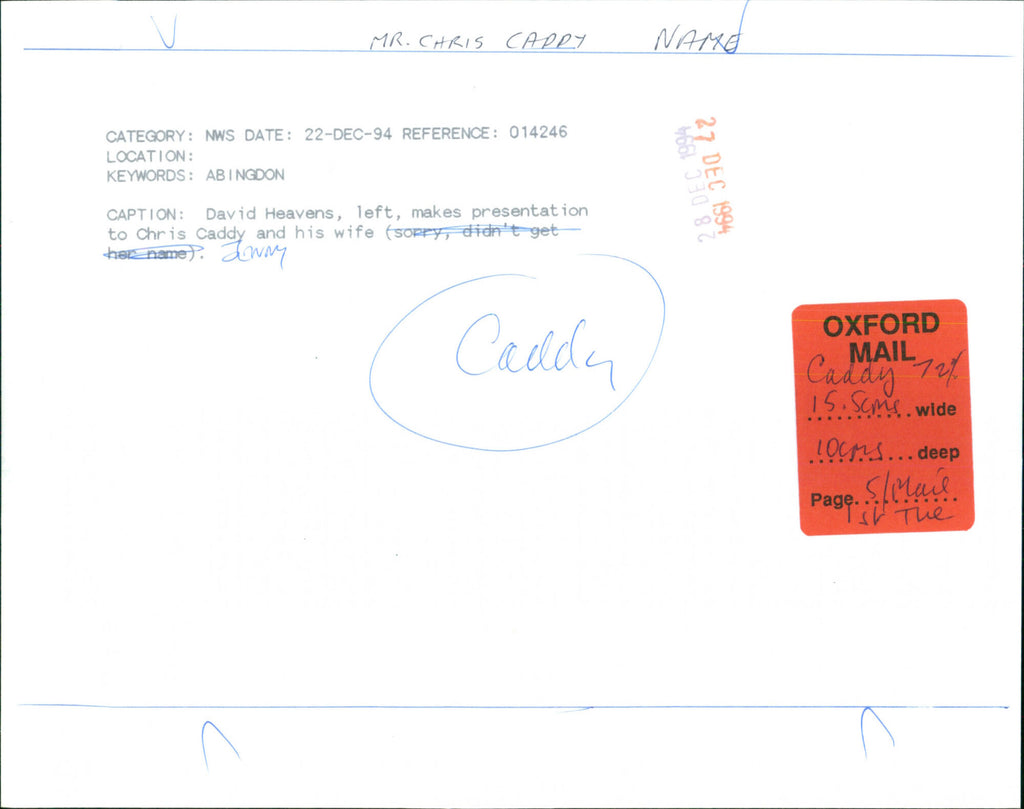 MR. CHRIS CADDY NAME
CATEGORY: NWS DATE: 22-DEC-94 REFERENCE: 014246
LOCATION:
KEYWORDS: ABINGDON
CAPTION: David Heavens, left, makes presentation
to Chris Caddy and his wife (sorry, didn't get
her name). Jenny
27 DEC 1994
28 DEC 1994
Caddy
OXFORD
MAIL
Caddy 72%
15.5cms wide
10cms deep
Page S/Mail
1st Tue